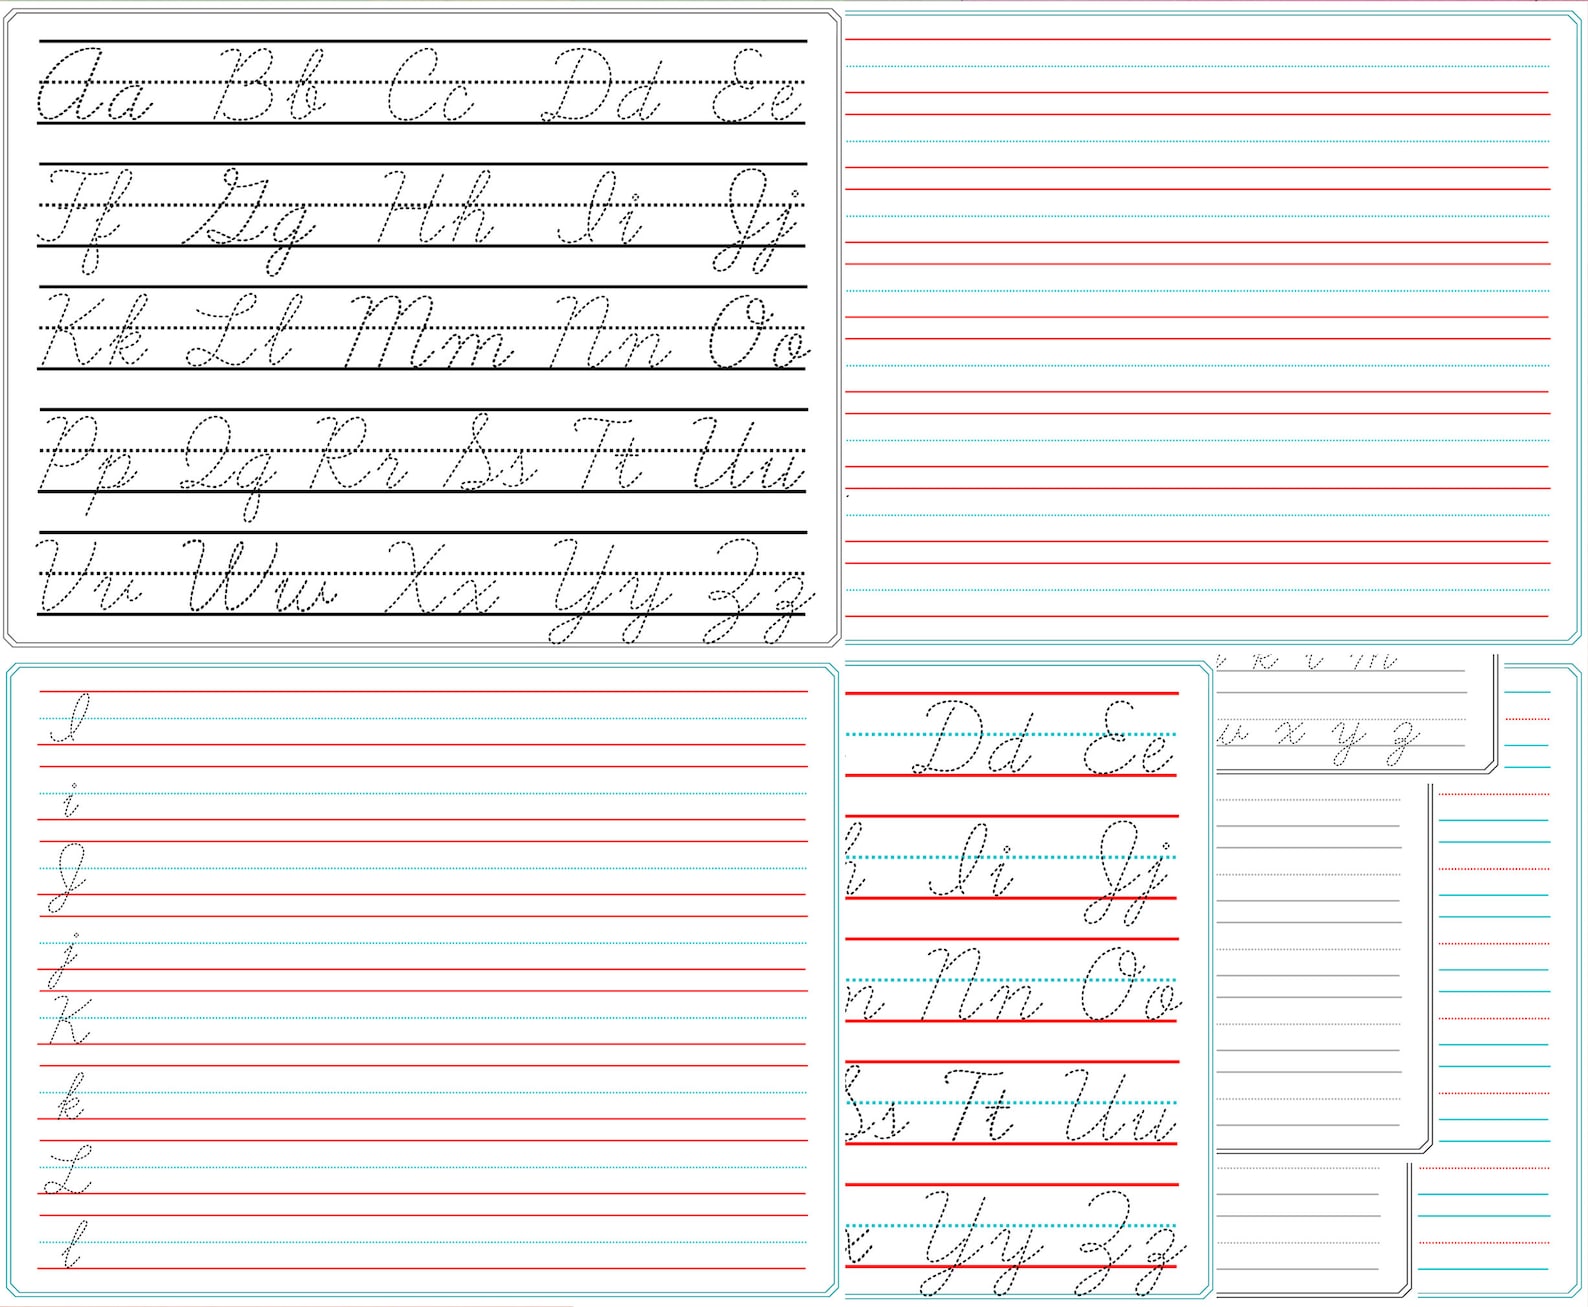 Aa Bb Cc Dd Ee
Ff Gg Hh Ii Jj
Kk Ll Mm Nn Oo
Pp Qq Rr Ss Tt Uu
Vv Ww Xx Yy Zz
I
i
J
j
K
k
L
l
Dd Ee
h Ii Jj
n Nn Oo
Ss Tt Uu
x Yy Zz
k l m
w x y z